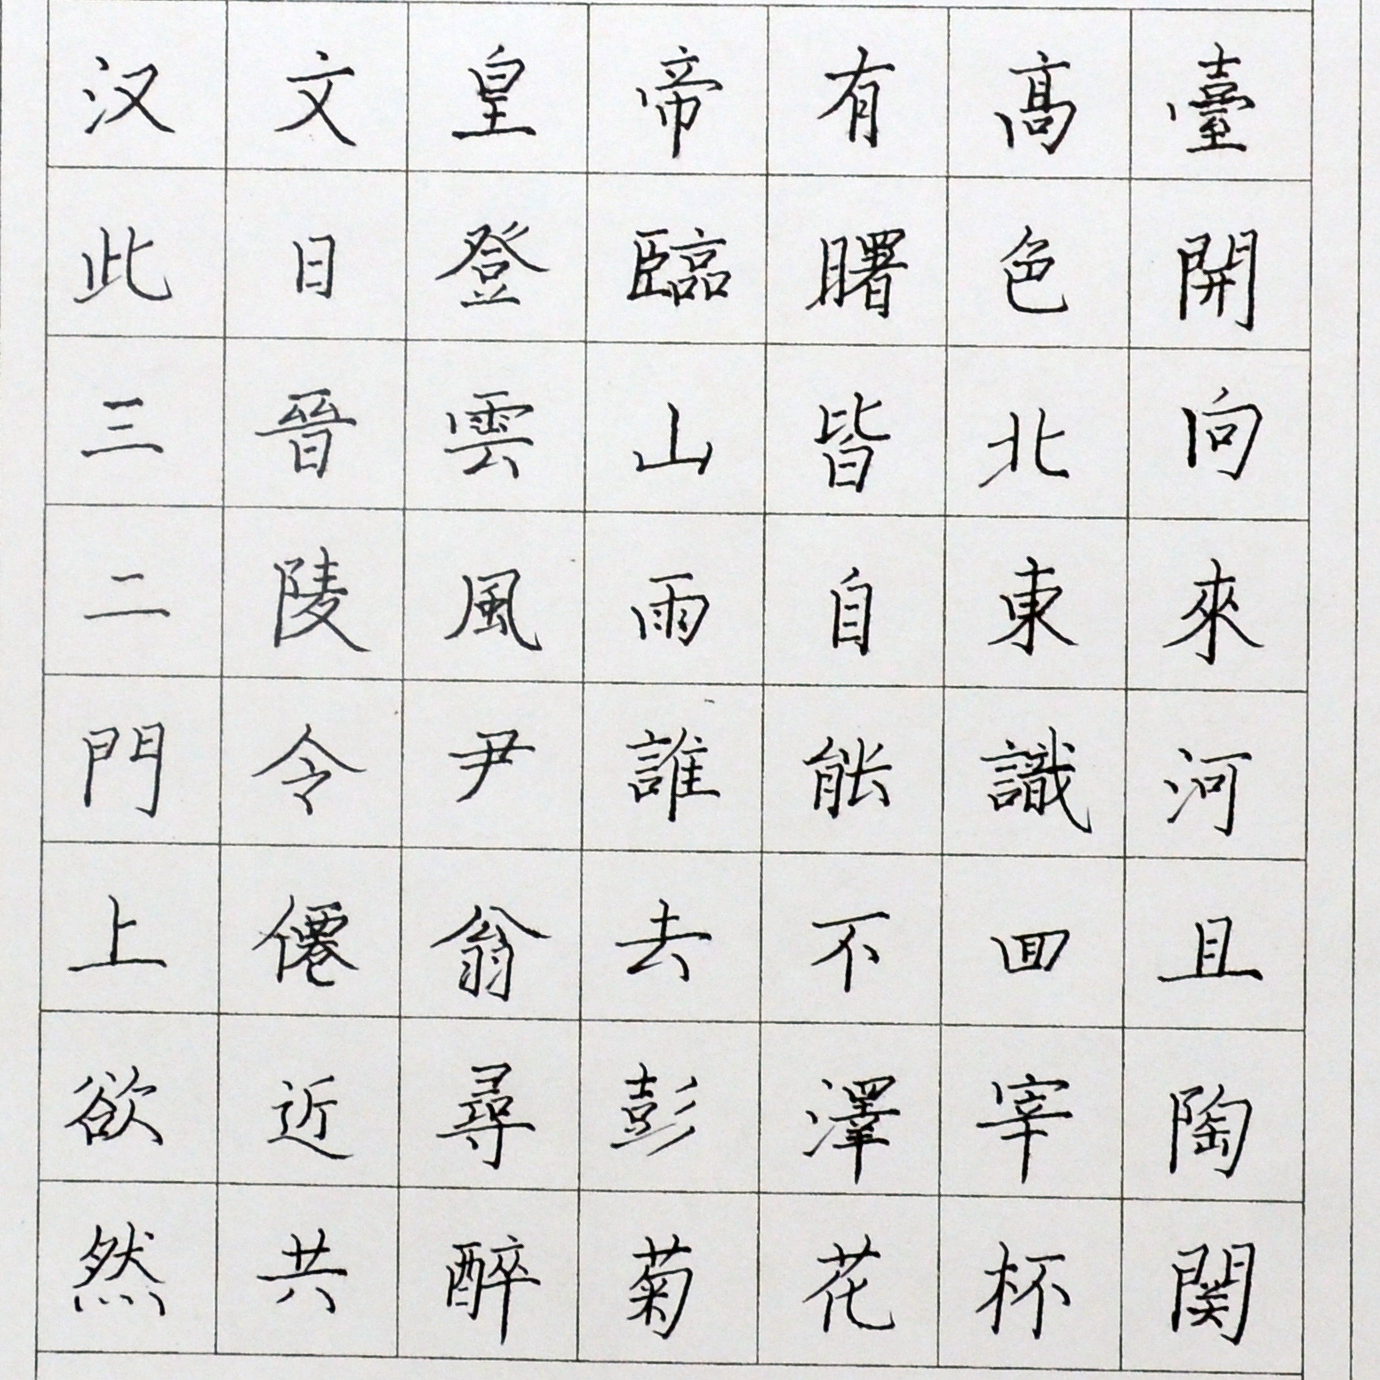 汉文皇帝有髙臺
此日登臨曙色開
三晉雲山皆北向
二陵風雨自東來
門令尹誰能識河
上僊翁去不囬且
欲近尋彭澤宰陶
然共醉菊花杯関